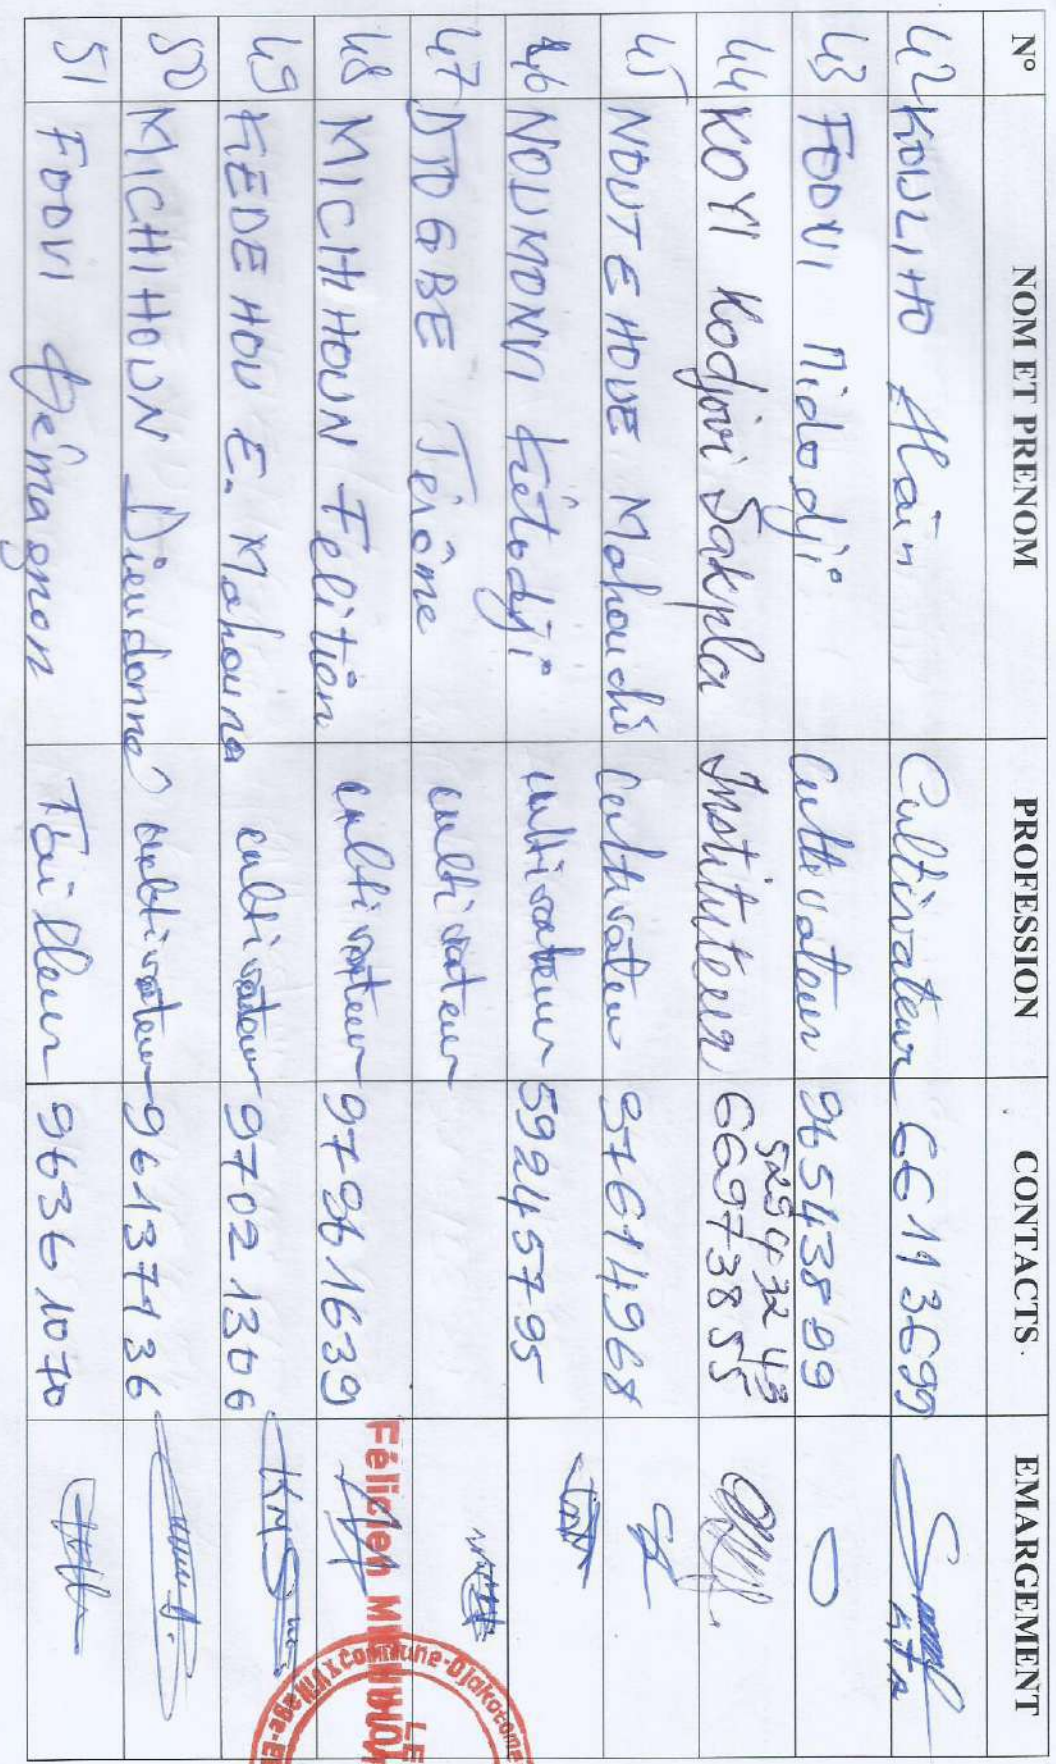 N° NOM ET PRENOM PROFESSION CONTACTS EMARGEMENT
42 KOULIHO Alain Cultivateur 66113699
43 FODVI Midodji Cultivateur 96543899
44 KOYI Kodjovi Sakpla Instituteur 52543243
66973855
45 NOUTEHOUE Mahouchi Cultivateur 97614968
46 NOUMONVI Kétodji cultivateur 59245795
47 DJOGBE Térôme cultivateur
48 MICHIHOUN Felitien cultivateur 97961639
49 KEDEHOU E. Mahouna cultivateur 97021306
50 MICHIHOUN Dieudonné cultivateur 96137136
51 FODVI Sèmagnon Tailleur 96361070
Félicien
LE
Commune